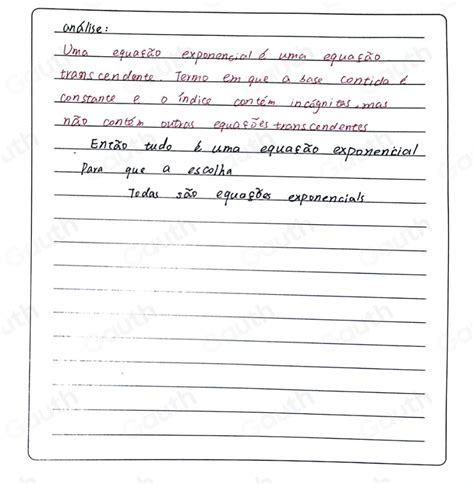 análise:
Uma equação exponencial é uma equação
transcendente. Termo em que a base contida é
constante e o índice contém incógnitas, mas
não contém outras equações transcendentes
Então tudo é uma equação exponencial
Para que a escolha
Todas são equações exponencials
Gauth